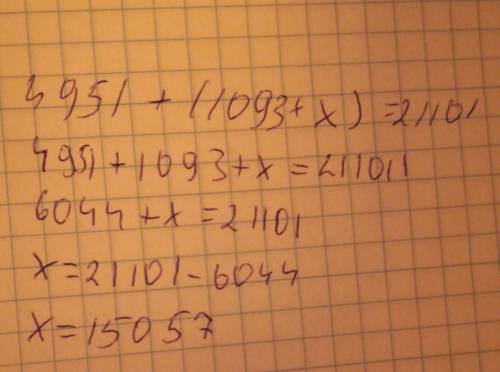 4951 + (1093+x) =21101
4951+1093+x=211011
6044+x=21101
x=21101-6044
x=15057